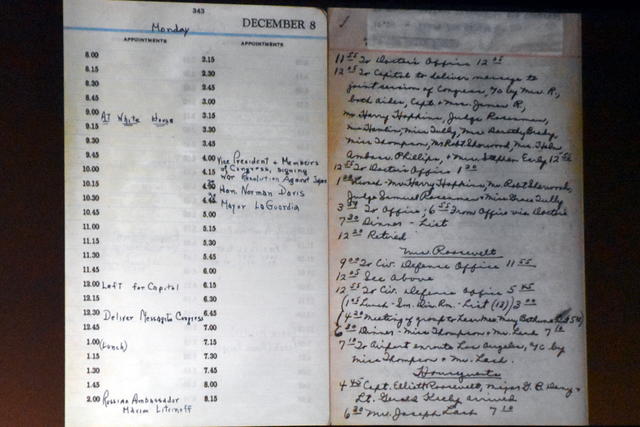 343
Monday
DECEMBER 8
APPOINTMENTS
8.00
8.15
8.30
8.45
9.00 At White House
9.15
9.30
9.45
10.00
10.15
10.30
10.45
11.00
11.15
11.30
11.45
12.00 Left for Capital
12.15
12.30
12.45 Deliver Message to Congress
1.00 (Lunch)
1.15
1.30
1.45
2.00 Russian Ambassador
Maxim Litvinoff
APPOINTMENTS
2.15
2.30
2.45
3.00
3.15
3.30
3.45
4.00 Vice President + Members
of Congress, signing
4.15 War Resolution Against Japan
4.30 Hon. Norman Davis
4.45 Mayor LaGuardia
5.00
5.15
5.30
5.45
6.00
6.15
6.30
6.45
7.00
7.15
7.30
7.45
8.00
8.15
11 55 To Doctor's Office 12 05
12 05 To Capitol to deliver message to
joint session of Congress, % by Mrs. R,
both aides, Capt. + Mrs. James R,
Mr Harry Hopkins, Judge Rosenman,
Miss Tully, Mrs Dorothy Brady,
Miss Thompson, Mr Robt Sherwood, Mrs. Helm,
Ambass. Phillips, + Mrs. Stephen Early 12 55
12 55 To Doctor's Office 1 20
Lunch - Mr Harry Hopkins, Mr. Robt Sherwood,
Judge Samuel Rosenman + Miss Grace Tully
To Office; 6 55 From Office via Doctors
7 30 Dinner - List
12 30 Retired
Mrs. Roosevelt
9 00 To Civ. Defense Office 11 55
12 05 See Above
12 55 To Civ. Defense Office 5 45
(1 05 Lunch - Sm. Din. Rm. - List (12)) 3 00
(4 30 Meeting of group to
6 30 Dinner - Miss Thompson + Mr. Lash 7 10
7 10 To Airport enroute Los Angeles, % by
Miss Thompson + Mr. Lash.
Houseguests
Capt. Elliott Roosevelt, Major D. B. Dary +
Lt. Gerald arrived
6 30 Mr. Joseph Lash 7 10